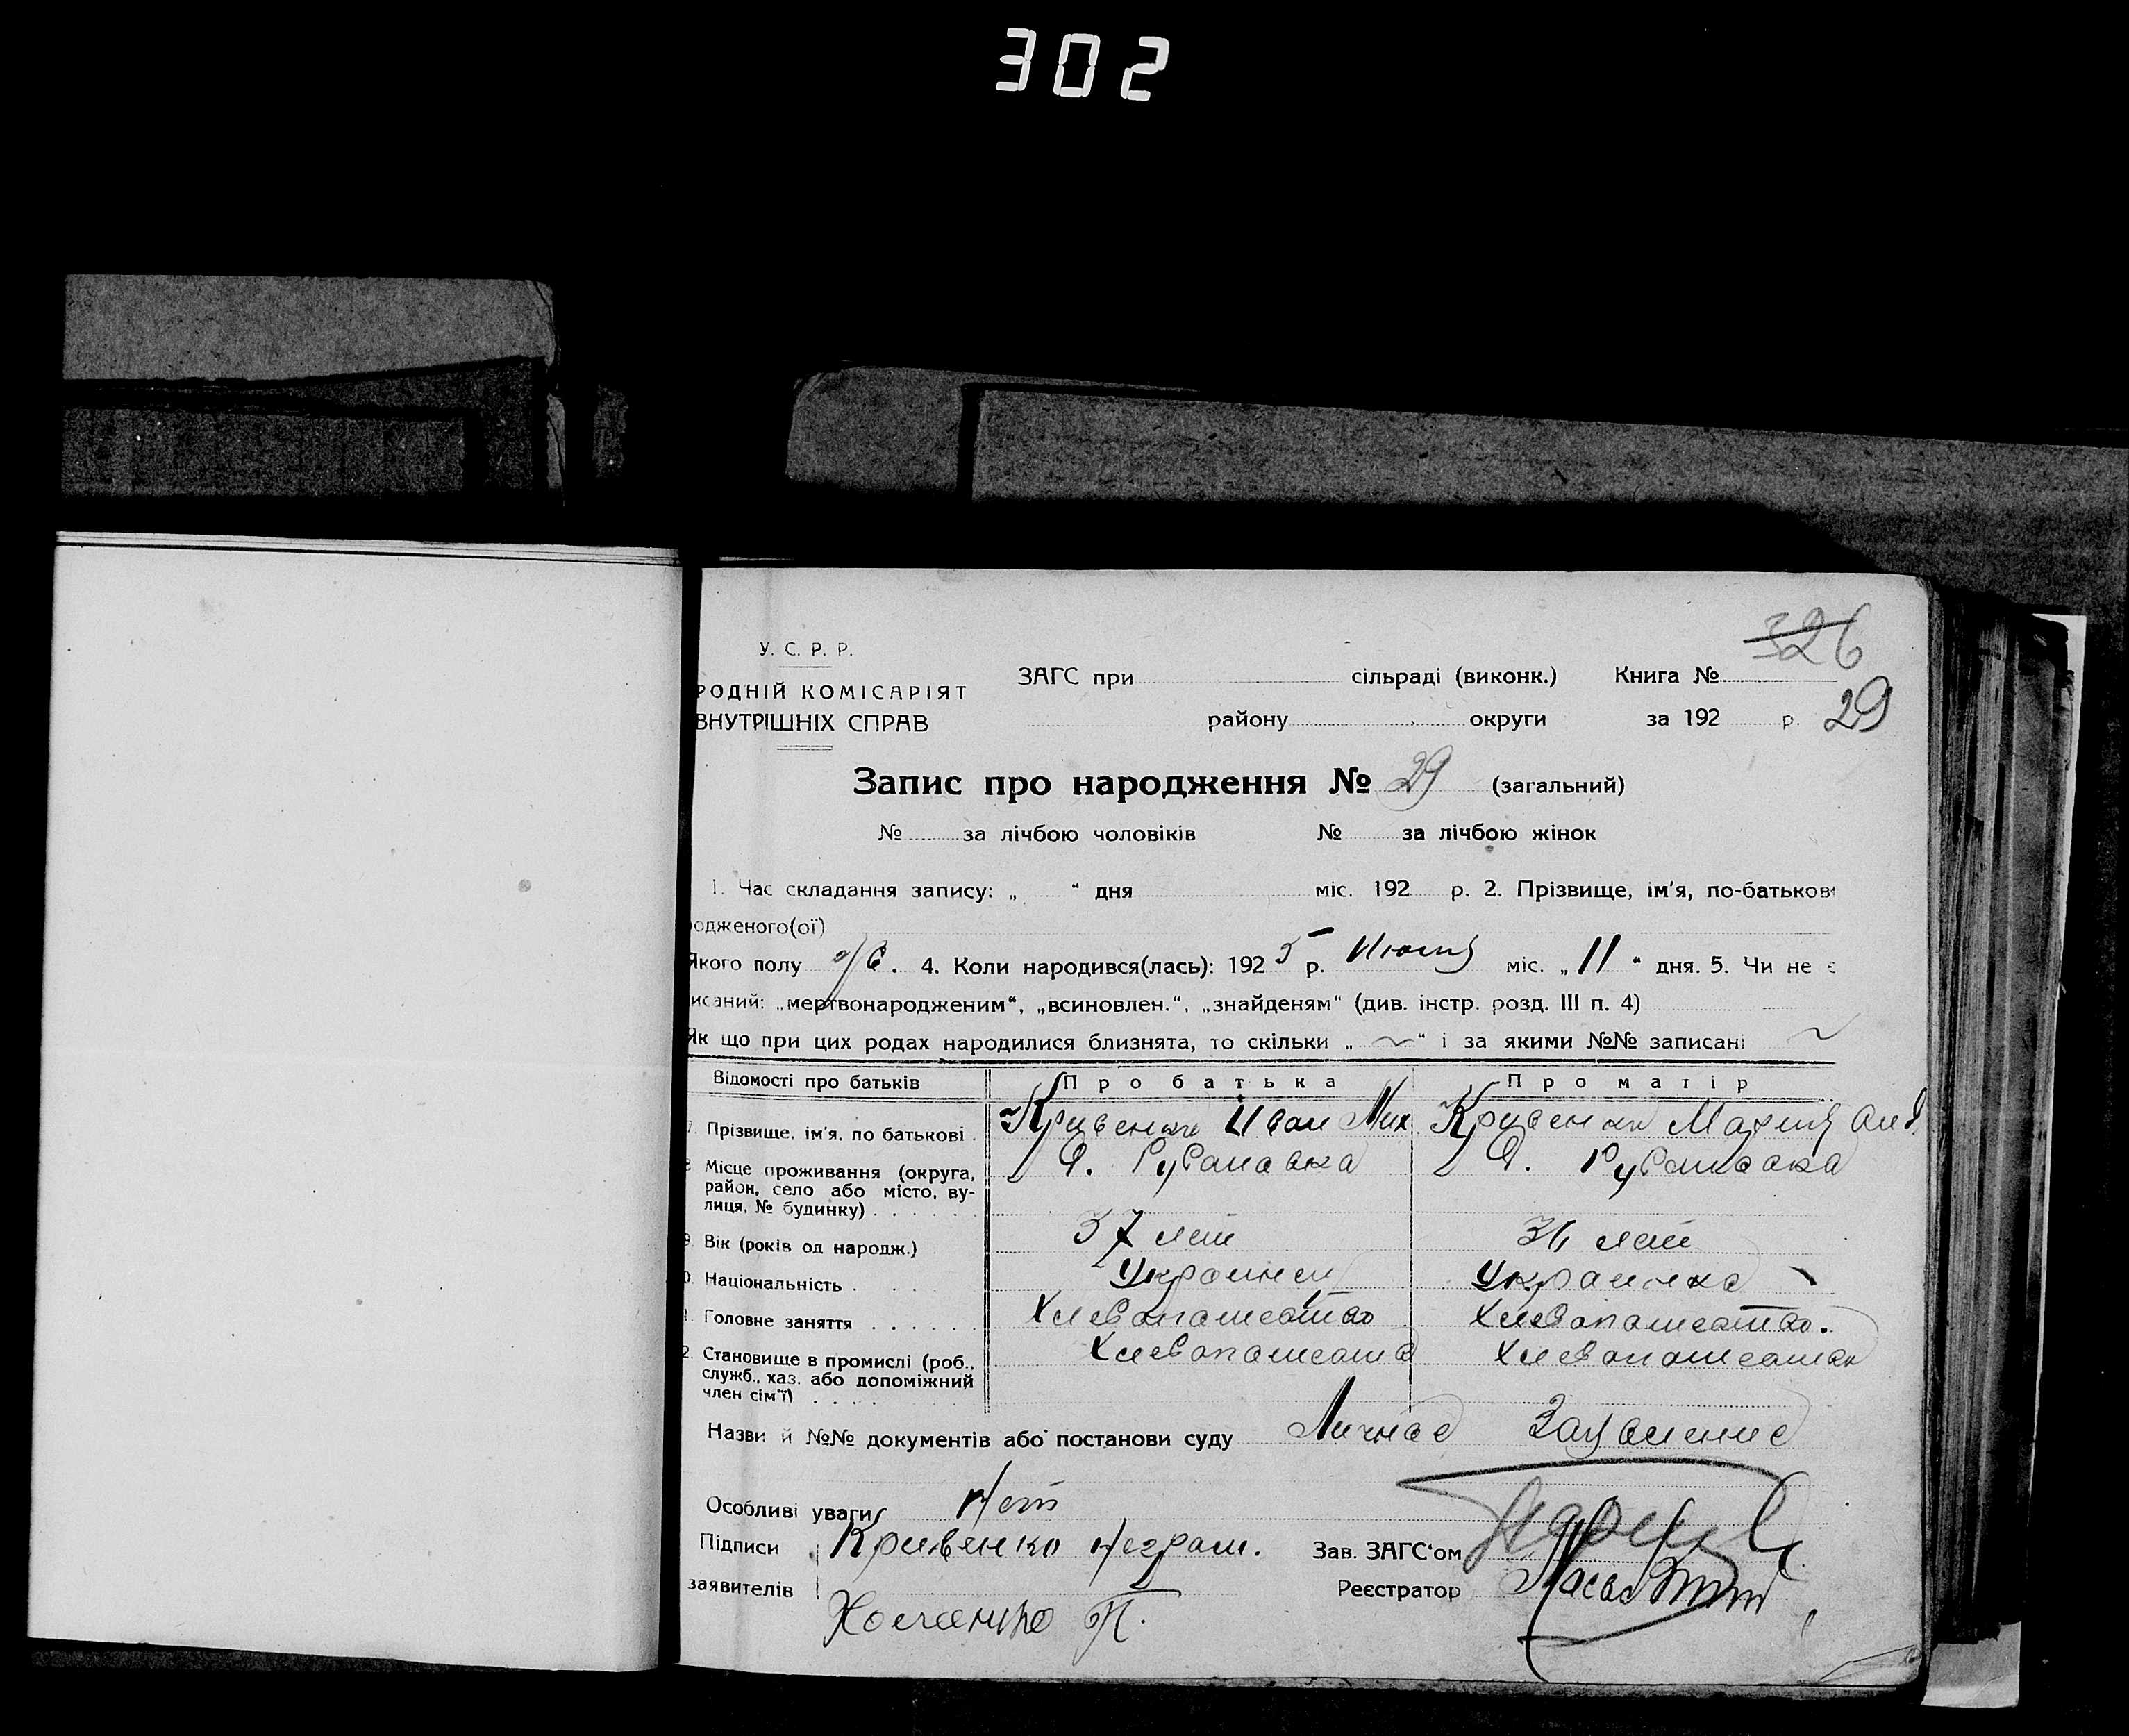 302
326
У. С. Р. Р.
РОДНІЙ КОМІСАРІЯТ
ВНУТРІШНІХ СПРАВ
ЗАГС при сільраді (виконк.) Книга №
району округи за 192 р. 29
Запис про народження № 29 (загальний)
№ за лічбою чоловіків № за лічбою жінок
1. Час складання запису: „ “ дня міс. 192 р. 2. Прізвище, ім'я, по-батькові
родженого(ої)
Якого полу 4. Коли народився(лась): 1925 р. міс. „11“ дня. 5. Чи не є
исаний: „мертвонародженим“, „всиновлен.“, „знайденям“ (див. інстр. розд. III п. 4)
Як що при цих родах народилися близнята, то скільки „ “ і за якими №№ записані
Відомості про батьків Про батька Про матір
7. Прізвище, ім'я, по батькові Кривенко Иван Мих Кривенко Мария
8. Місце проживання (округа, район, село або місто, вулиця, № будинку) Рубановка Рубановка
9. Вік (років од народж.) 37 лет лет
0. Національність Украинец Украинка
1. Головне заняття Хлебопашество Хлебопашество.
2. Становище в промислі (роб., служб., хаз. або допоміжний член сім'ї)
Назви й №№ документів або постанови суду Личное Заявление
Особливі уваги Нет
Підписи Кривенко неграм. Зав. ЗАГС'ом
заявителів Реєстратор